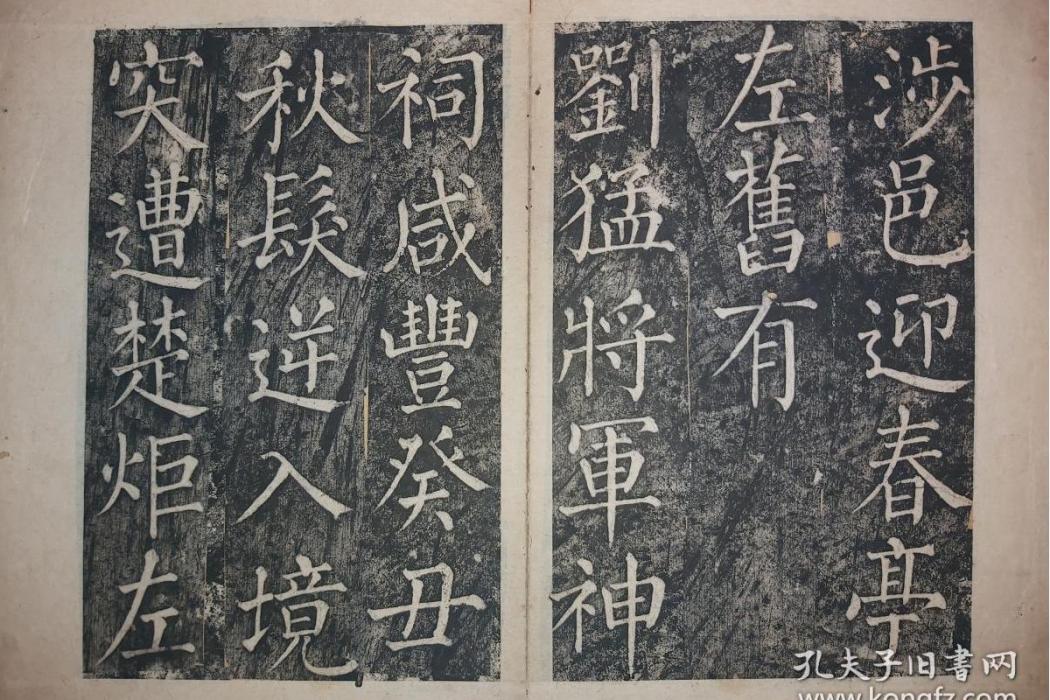 涉邑迎春亭
左舊有
劉猛將軍神
祠咸豐癸丑
秋髮逆入境
突遭楚炬左
孔夫子旧書网
www.kongfz.com